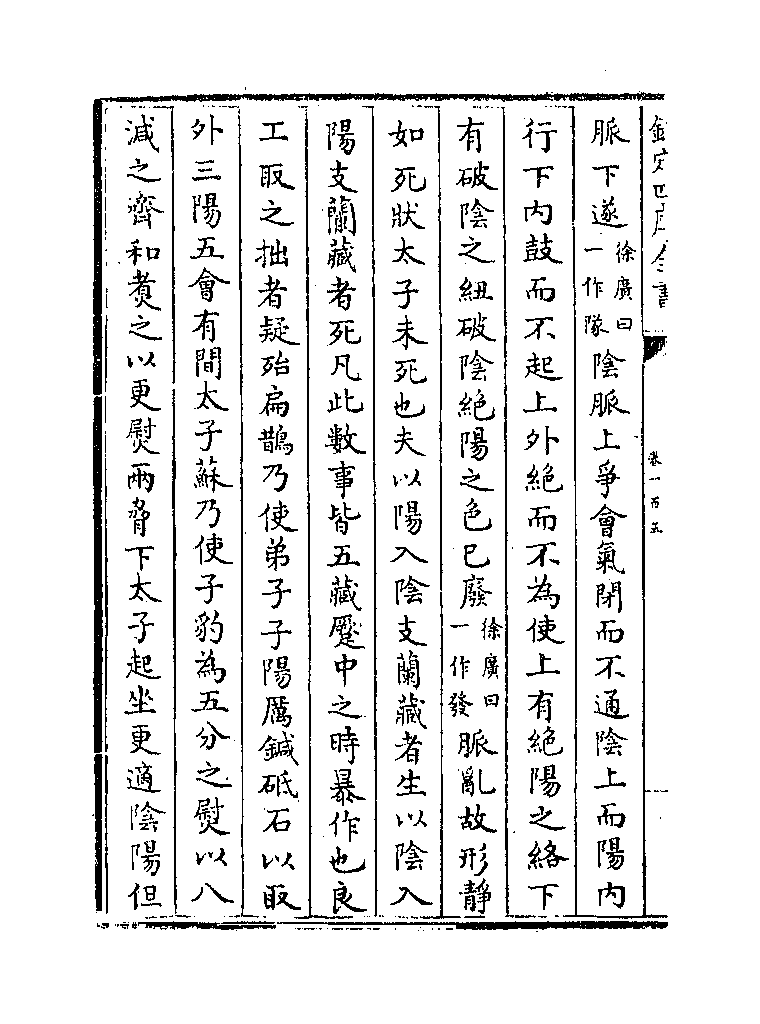 欽定四庫全書
卷一百五
脈下遂徐廣曰一作隊陰脈上爭會氣閉而不通陰上而陽内
行下内鼓而不起上外絶而不為使上有絶陽之絡下
有破陰之紐破陰絶陽之色已廢徐廣曰一作發脈亂故形靜
如死狀太子未死也夫以陽入陰支蘭藏者生以陰入
陽支蘭藏者死凡此數事皆五藏蹙中之時暴作也良
工取之拙者疑殆扁鵲乃使弟子子陽厲鍼砥石以取
外三陽五會有間太子蘇乃使子豹為五分之熨以八
減之齊和煑之以更熨兩脅下太子起坐更適陰陽但